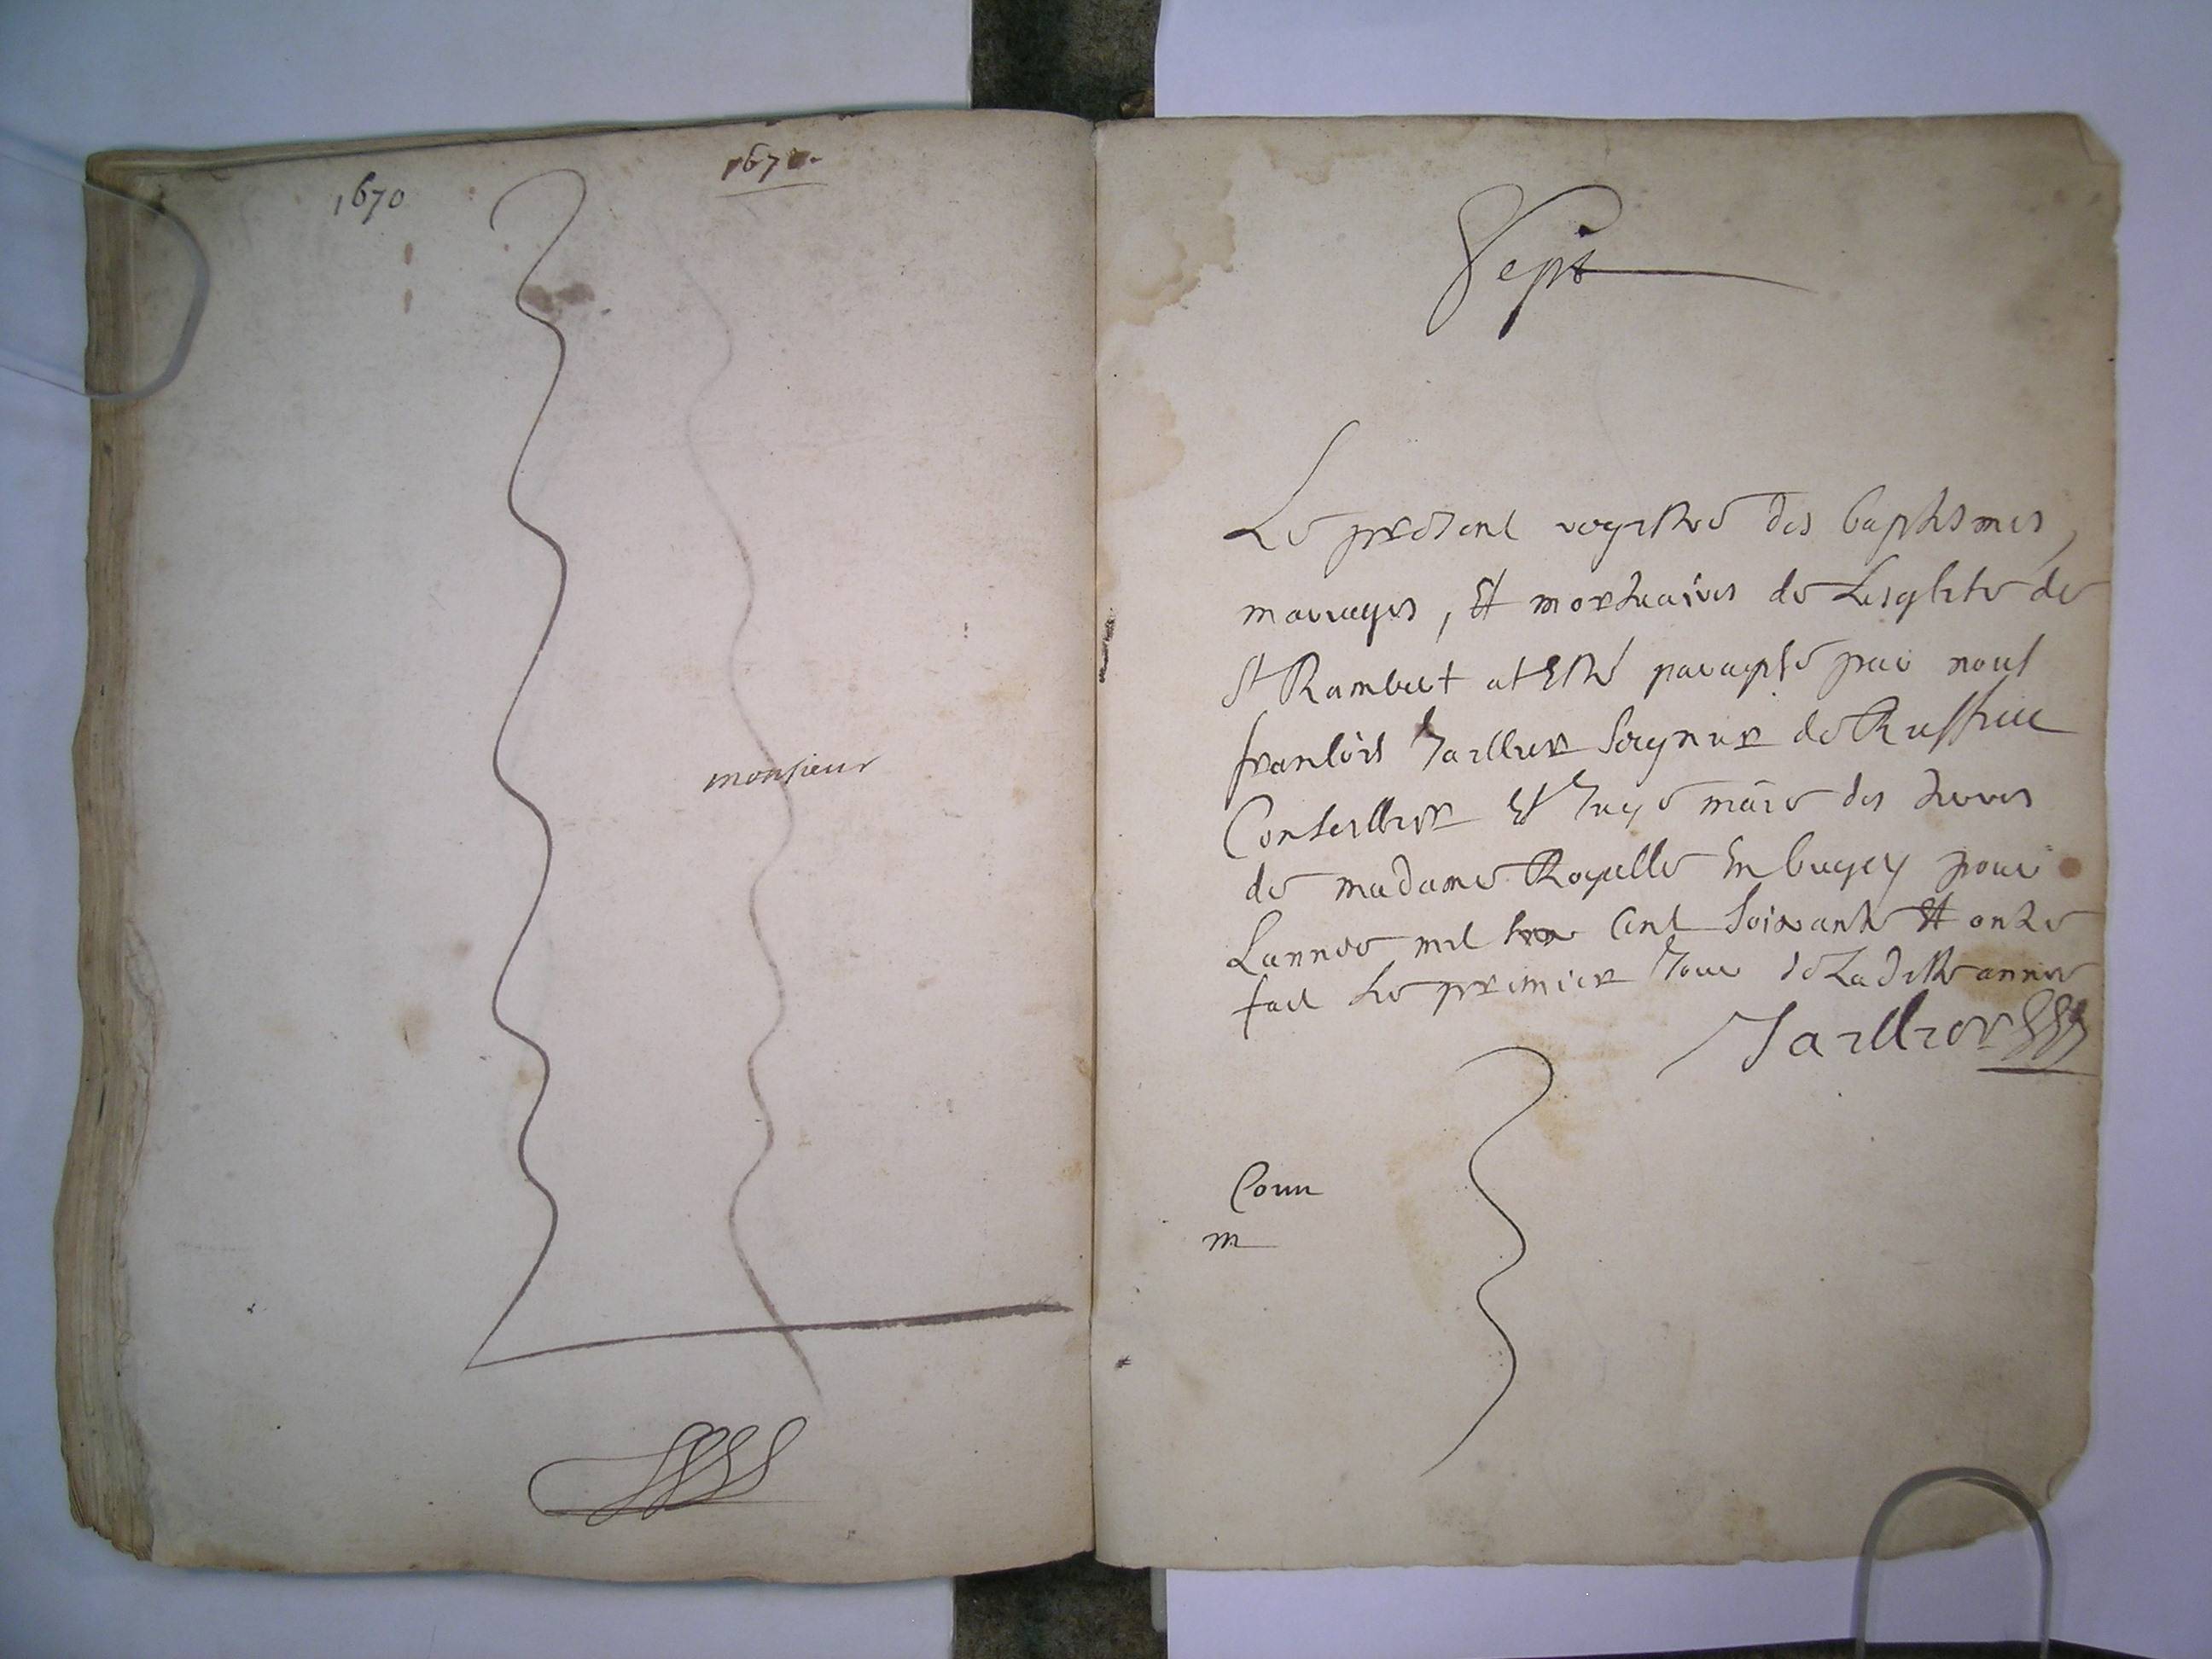 1670
1670.
monsieur
Sept
Le present registre des baptesmes,
mariages, Et mortuaires de Lesglise de
St Rambert at Esté paraphé par nous
francois Jaillier seigneur de
Conseiller Et Juge maie des terres
de madame Royalle En bugey pour
Lannee mil six Cent soixante Et onze
fait Le premier Jour de Laditte annee
Jaillier
Comm
m